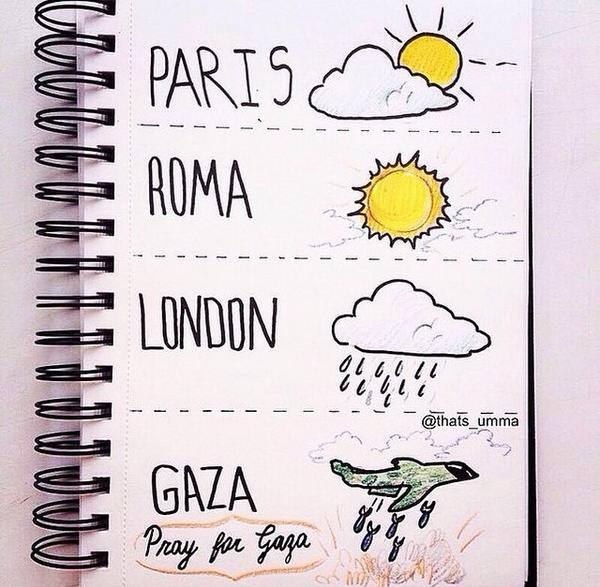 PARIS
ROMA
LONDON
@thats_umma
GAZA
Pray for Gaza